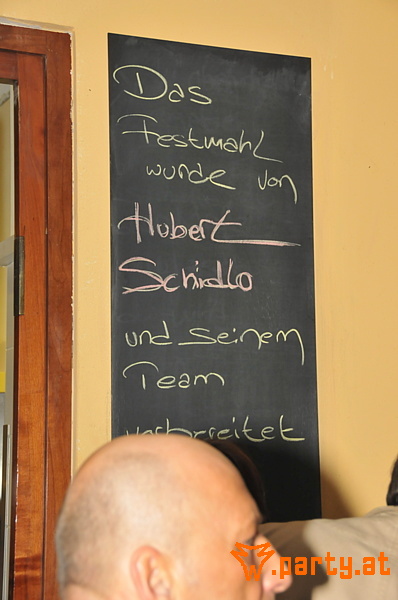 Das
Festmahl
wurde von
Hubert
Schidlo
und seinem
Team
vorbereitet
party.at